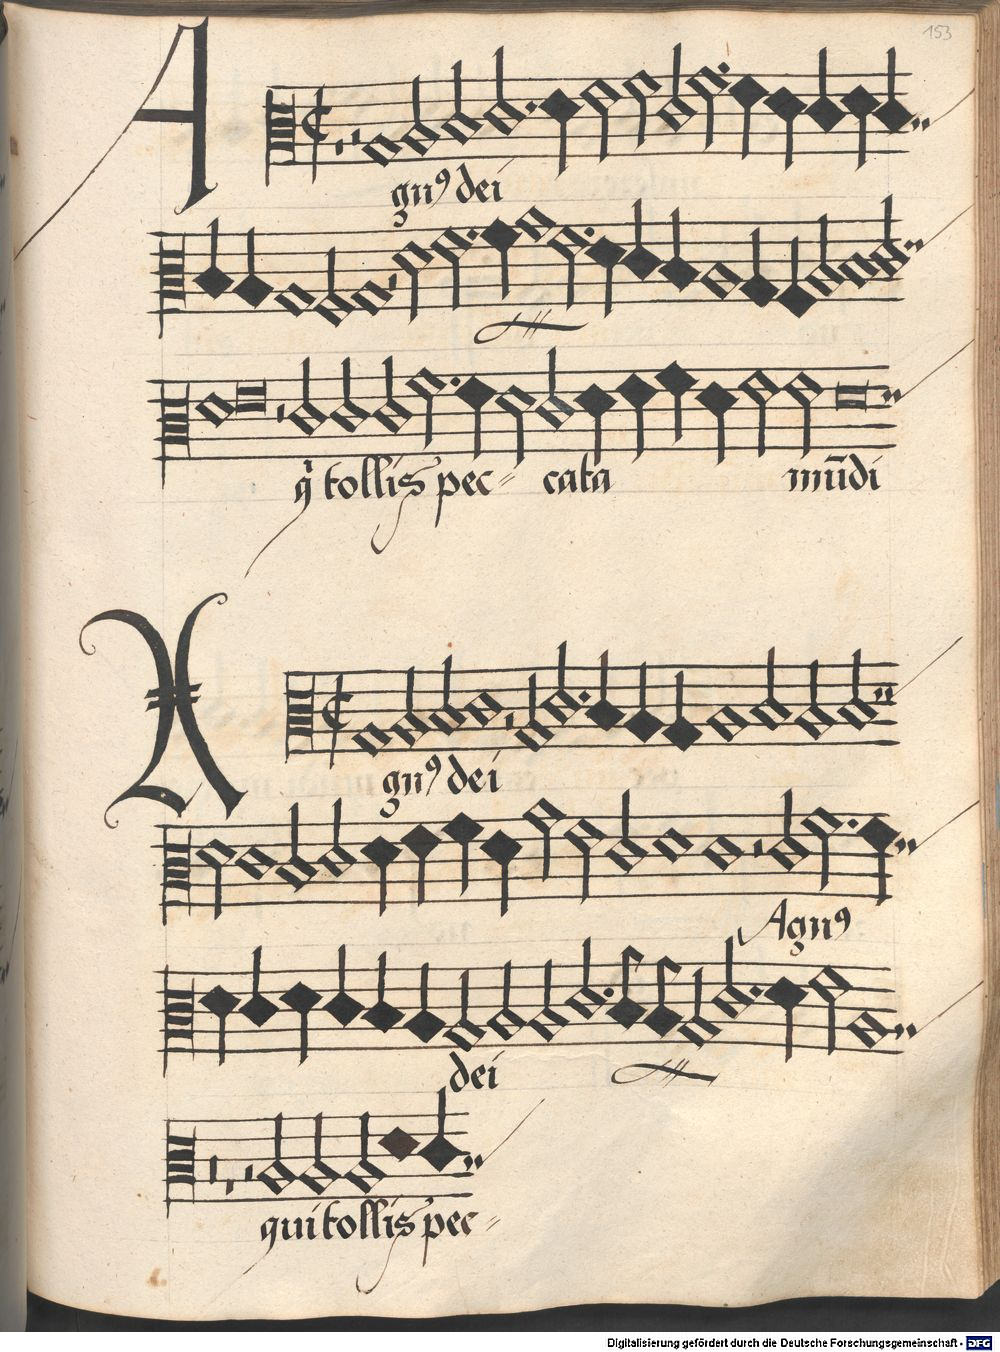 153
A
gnꝰ dei
q̇ tollis pec=
cata
mūdi
A
gnꝰ dei
Agnꝰ
dei
qui tollis pec=
Digitalisierung gefördert durch die Deutsche Forschungsgemeinschaft - DFG